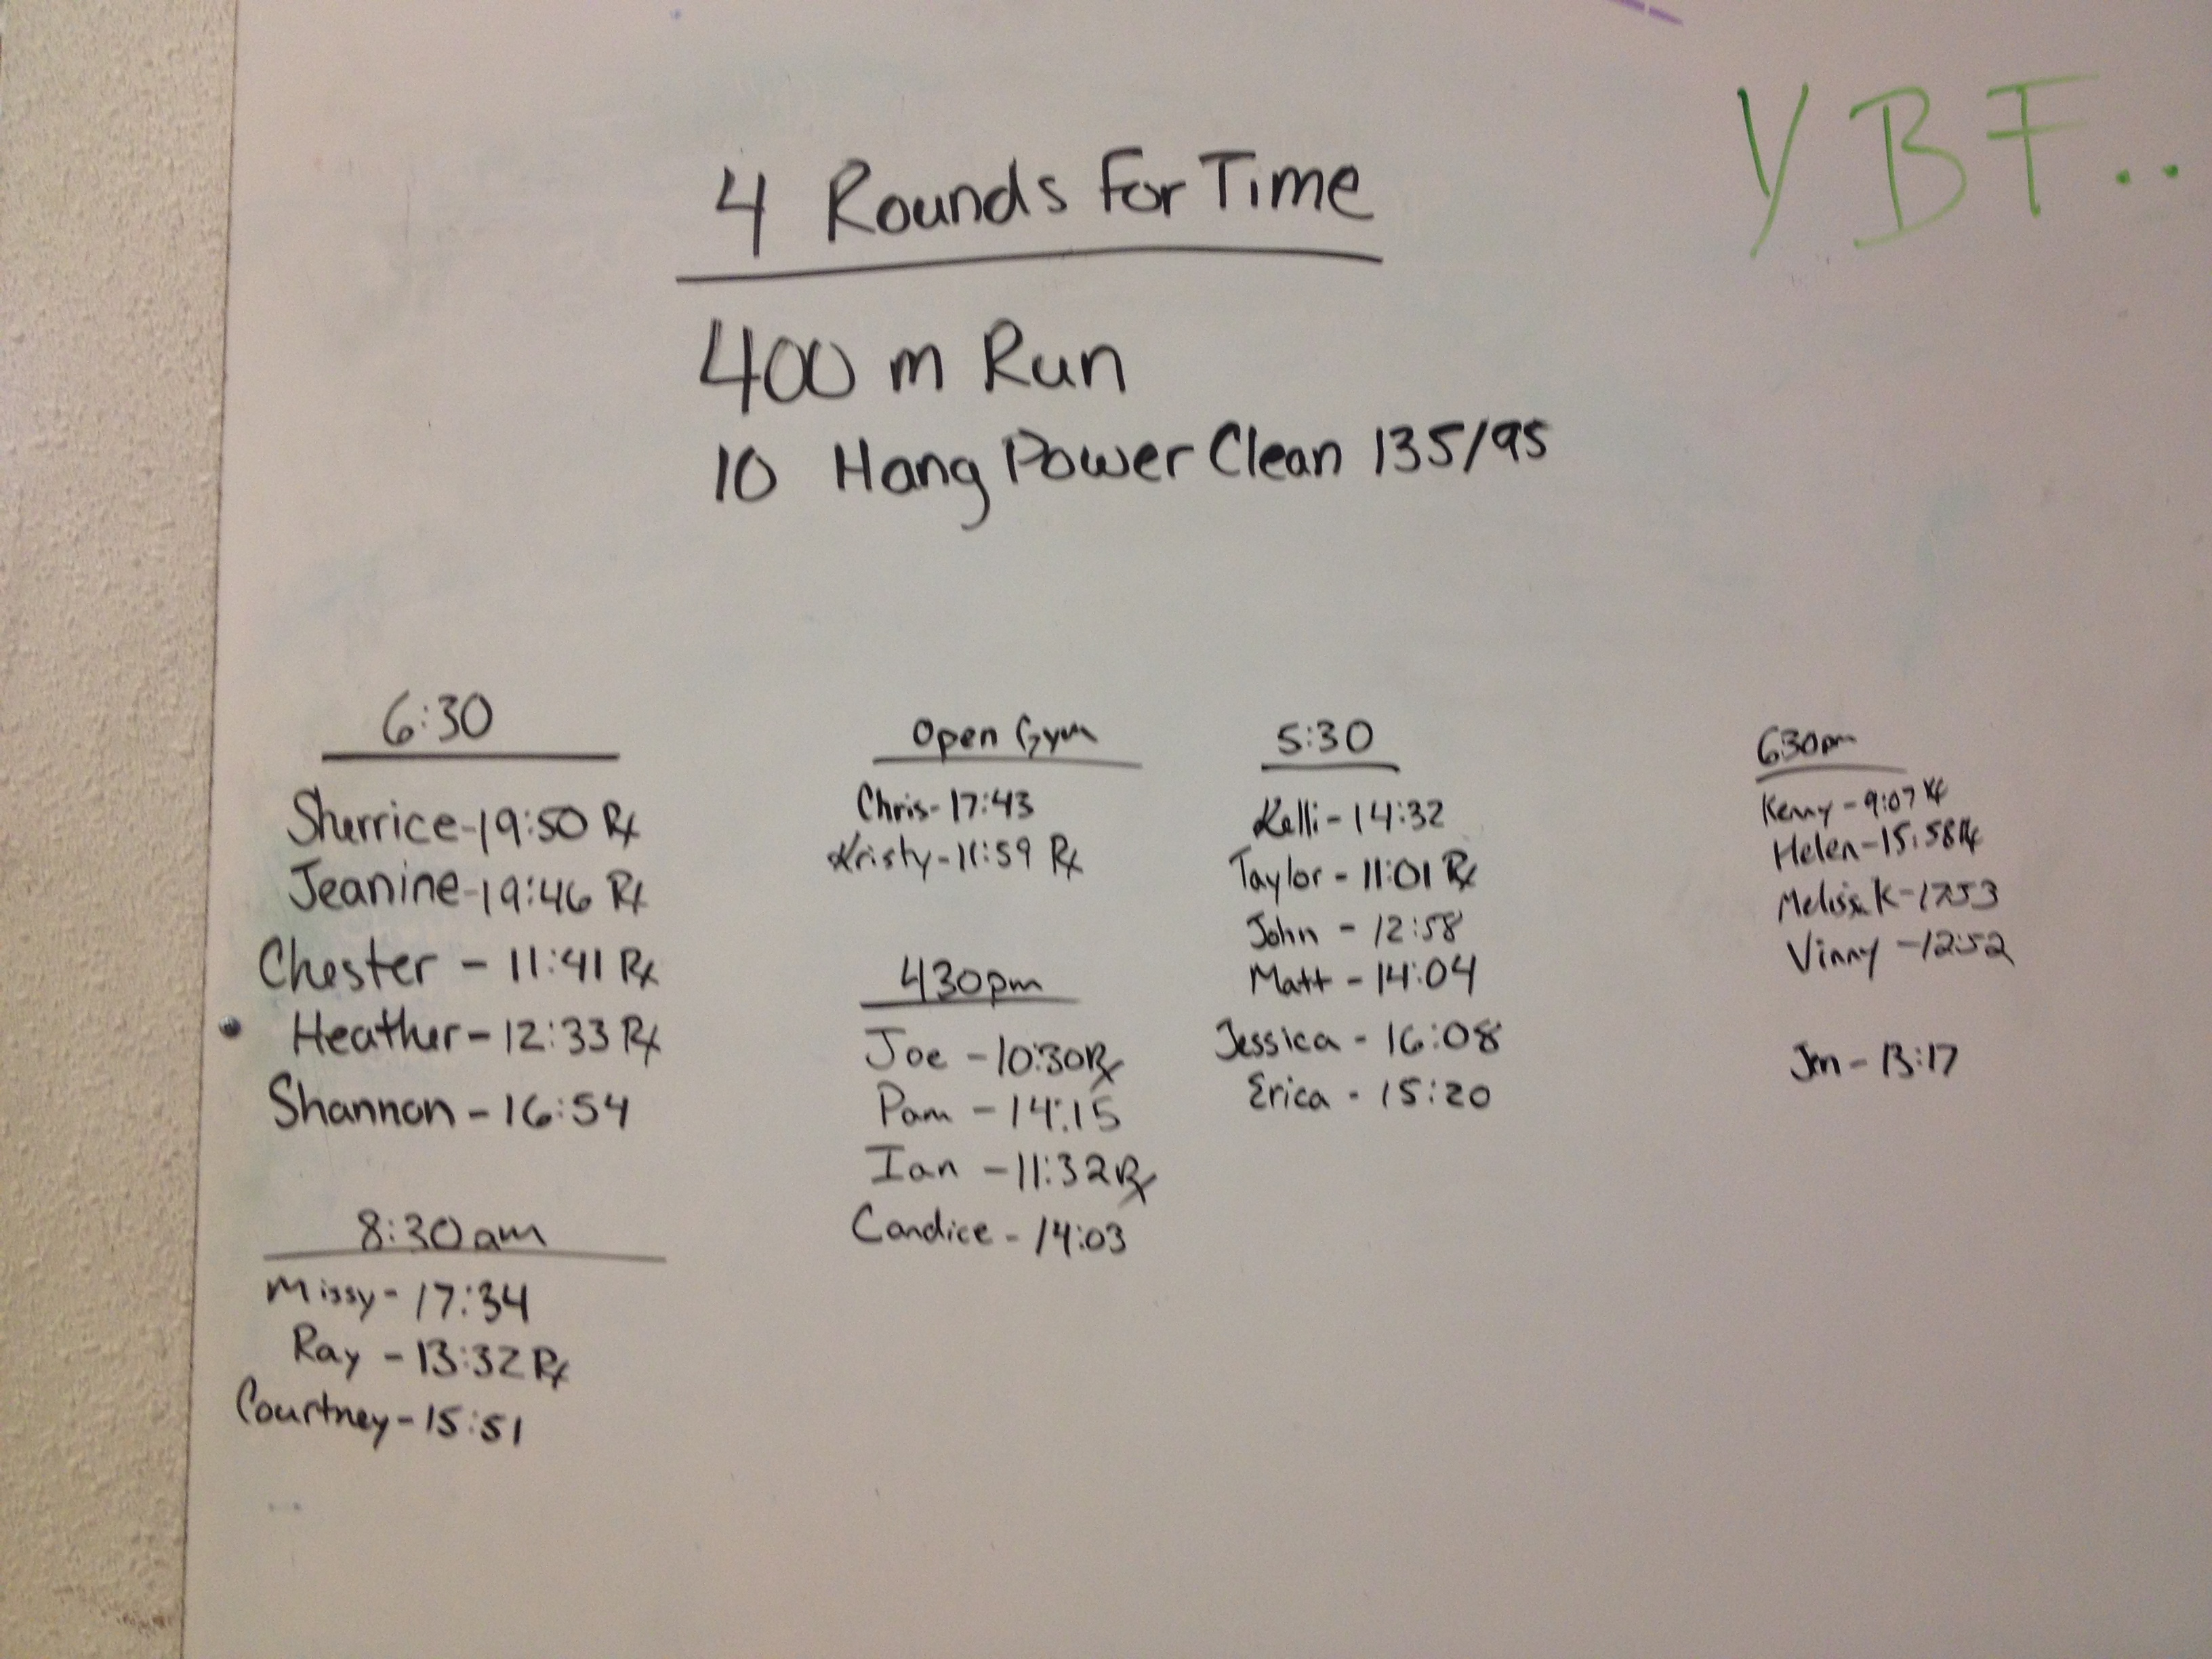 YBF..
4 Rounds For Time
400 m Run
10 Hang Power Clean 135/95
6:30
Sherrice-19:50 Rx
Jeanine-19:46 Rx
Chester - 11:41 Rx
Heather - 12:33 Rx
Shannon - 16:54
8:30am
Missy - 17:34
Ray - 13:32 Rx
Courtney - 15:51
Open Gym
Chris - 17:43
Kristy - 11:59 Rx
430pm
Joe - 10:30 Rx
Pam - 14:15
Ian - 11:32 Rx
Candice - 14:03
5:30
Kelli - 14:32
Taylor - 11:01 Rx
John - 12:58
Matt - 14:04
Jessica - 16:08
Erica - 15:20
630pm
Kenny - 9:07 Rx
Helen - 15:58 Rx
Melissa K - 17:53
Vinny - 12:52
Jen - 13:17